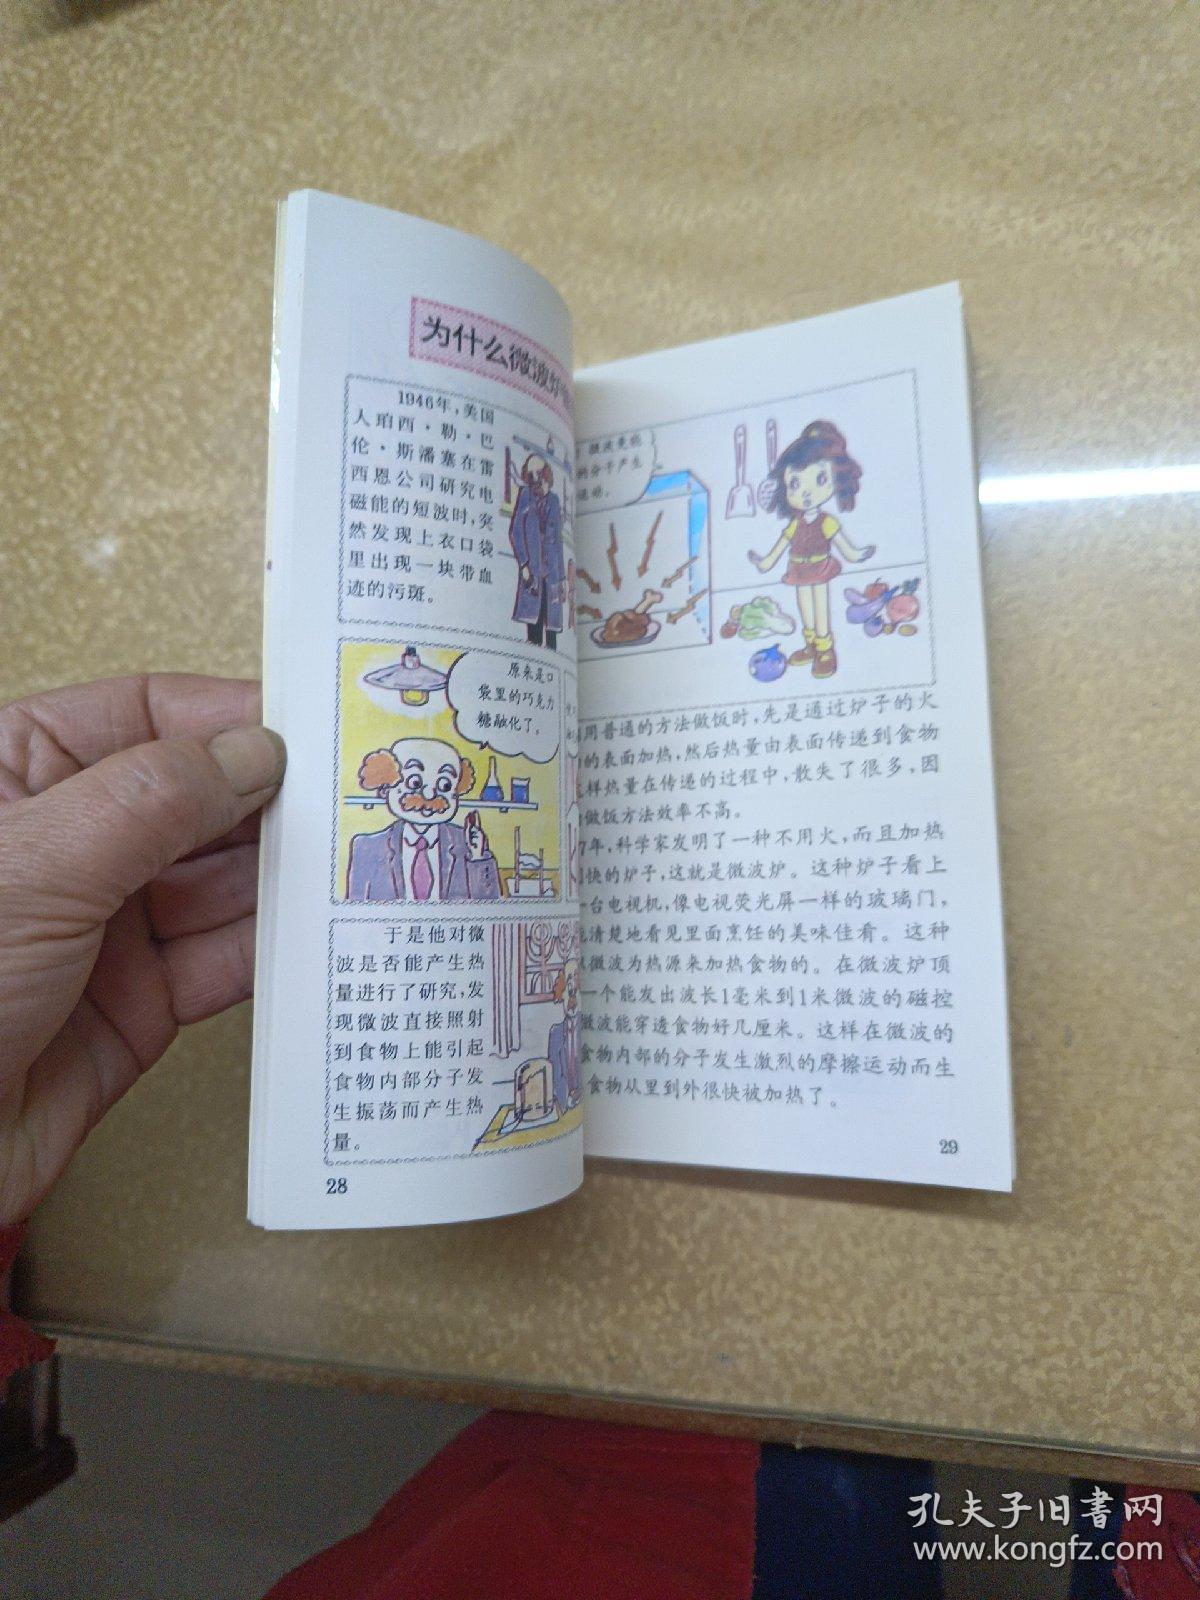 为什么微波炉
1946年，美国
人珀西·勒·巴
伦·斯潘塞在雷
西恩公司研究电
磁能的短波时，突
然发现上衣口袋
里出现一块带血
迹的污斑。
原来是口
袋里的巧克力
糖融化了。
于是他对微
波是否能产生热
量进行了研究，发
现微波直接照射
到食物上能引起
食物内部分子发
生振荡而产生热
量。
28
微波竟能
的分子产生
运动。
用普通的方法做饭时，先是通过炉子的火
的表面加热，然后热量由表面传递到食物
样热量在传递的过程中，散失了很多，因
做饭方法效率不高。
7年，科学家发明了一种不用火，而且加热
快的炉子，这就是微波炉。这种炉子看上
一台电视机，像电视荧光屏一样的玻璃门，
清楚地看见里面烹饪的美味佳肴。这种
微波为热源来加热食物的。在微波炉顶
一个能发出波长1毫米到1米微波的磁控
微波能穿透食物好几厘米。这样在微波的
食物内部的分子发生激烈的摩擦运动而生
食物从里到外很快被加热了。
29
孔夫子旧书网
www.kongfz.com